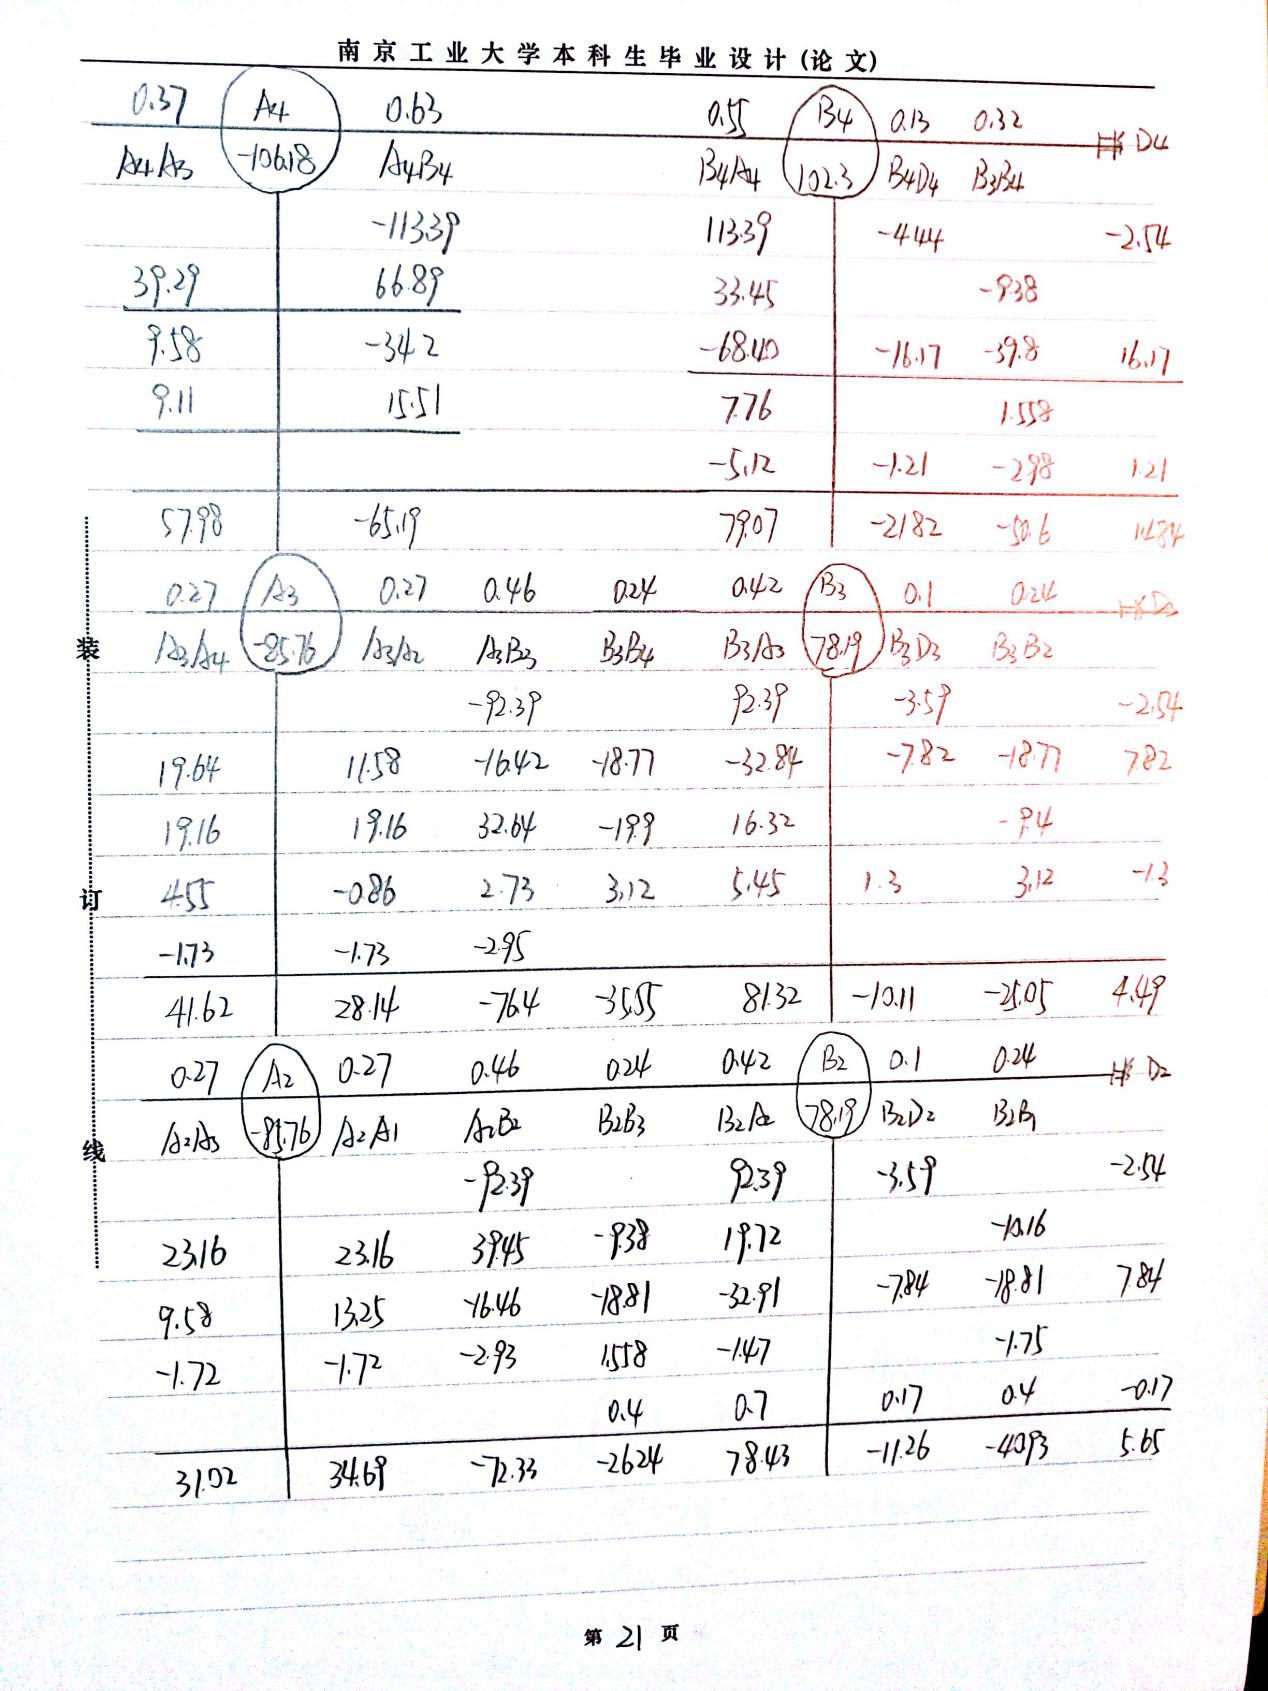 南京工业大学本科生毕业设计(论文)
0.37 A4 0.63 0.55 B4 0.13 0.32
A4A3 -106.18 A4B4 B4A4 102.3 B4D4 B3B4 D4
-113.39 113.39 -4.44 -2.54
39.29 66.89 33.45 -9.38
9.58 -34.2 -68.40 -16.17 -39.8 16.17
9.11 15.51 7.76 1.558
-5.12 -1.21 -2.98 1.21
57.98 -65.19 79.07 -21.82 -50.6 14.84
0.27 A3 0.27 0.46 0.24 0.42 B3 0.1 0.24
A3A4 -85.76 A3A2 A3B3 B3B4 B3A3 78.19 B3D3 B3B2
-92.39 92.39 -3.59 -2.54
19.64 11.58 -16.42 -18.77 -32.84 -7.82 -18.77 7.82
19.16 19.16 32.64 -19.9 16.32 -9.4
4.55 -0.86 2.73 3.12 5.45 1.3 3.12 -1.3
-1.73 -1.73 -2.95
41.62 28.14 -76.4 -35.55 81.32 -10.11 -25.05 4.49
0.27 A2 0.27 0.46 0.24 0.42 B2 0.1 0.24 D2
A2A3 -85.76 A2A1 A2B2 B2B3 B2A2 78.19 B2D2 B2B1
-92.39 92.39 -3.59 -2.54
23.16 23.16 39.45 -9.38 19.72 -10.16
9.58 13.25 -16.46 -18.81 -32.91 -7.84 -18.81 7.84
-1.72 -1.72 -2.93 1.558 -1.47 -1.75
0.4 0.7 0.17 0.4 -0.17
31.02 34.69 -72.33 -26.24 78.43 -11.26 -40.93 5.65
装
订
线
第 21 页